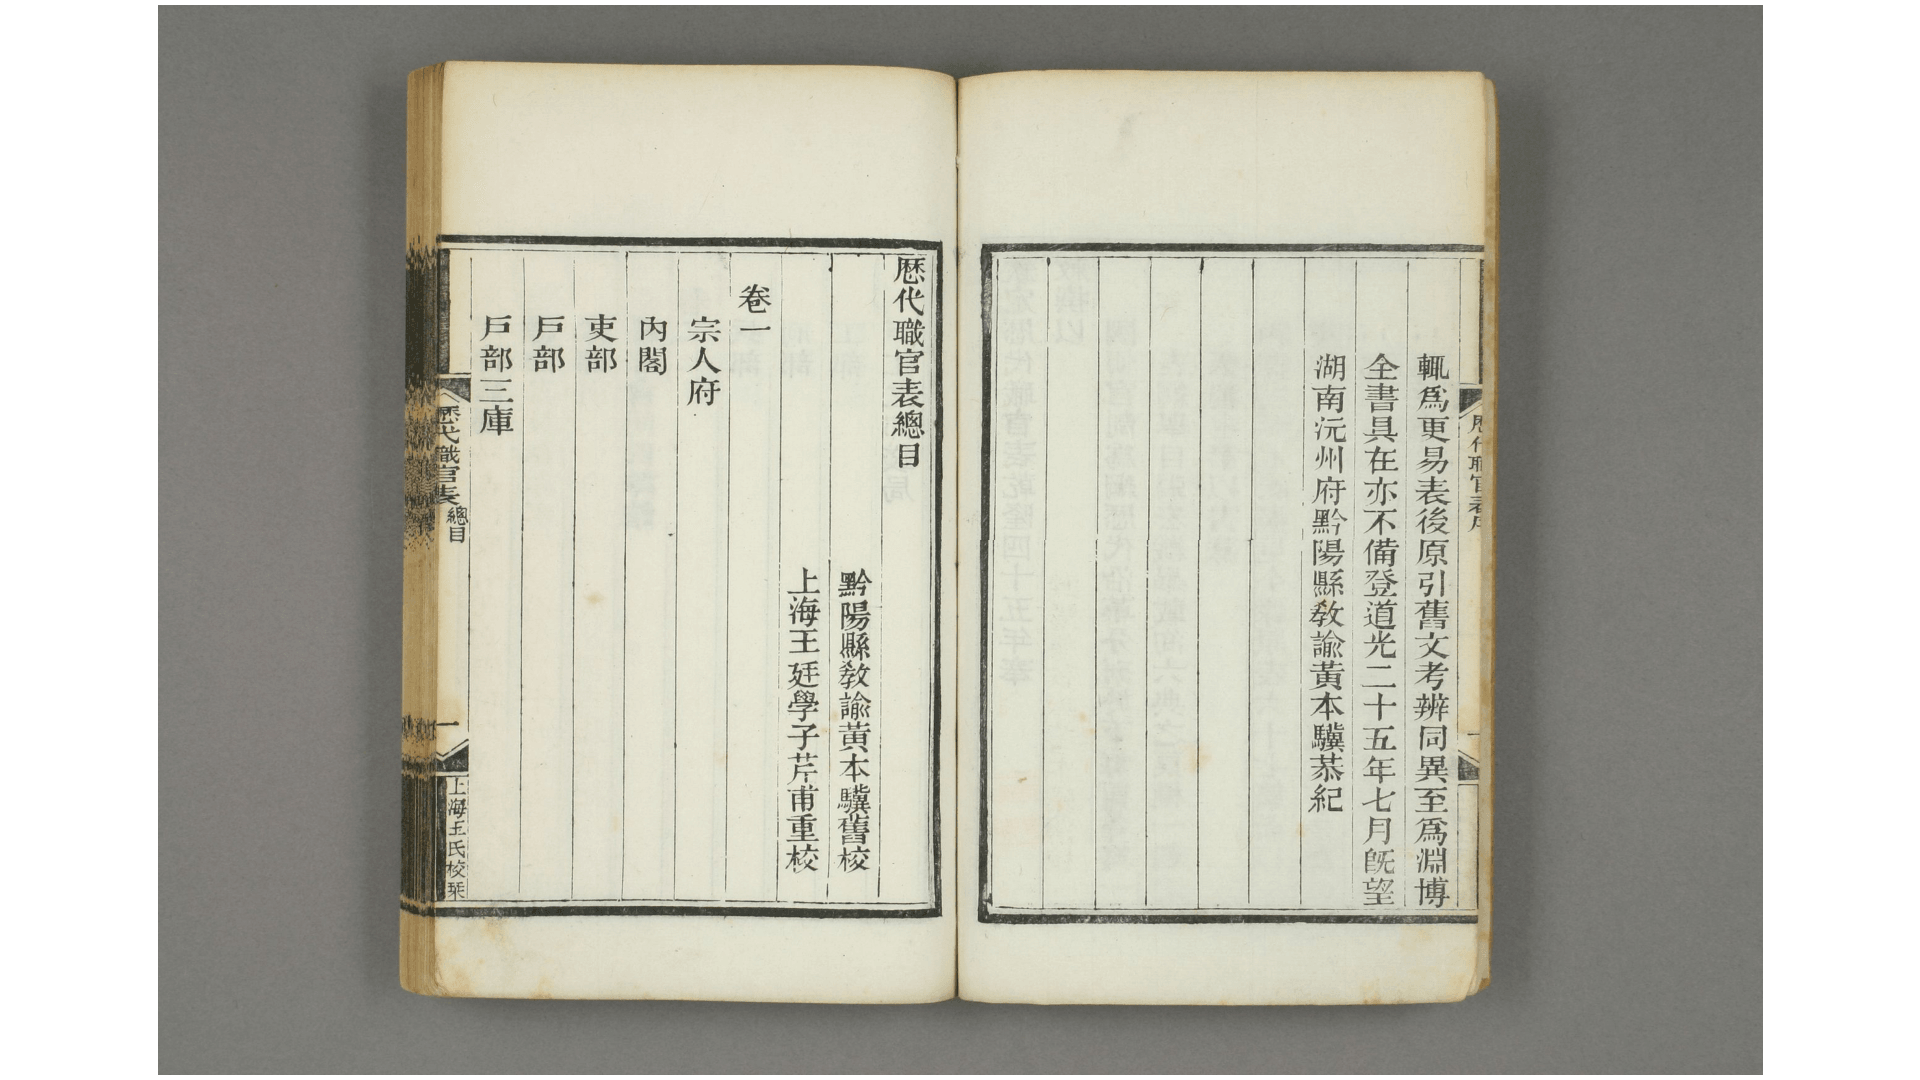 輒爲更易表後原引舊文考辨同異至爲淵博
全書具在亦不備登道光二十五年七月旣望
湖南沅州府黔陽縣敎諭黃本驥恭紀
歷代職官表總目
黔陽縣敎諭黃本驥舊校
上海王廷學子芹甫重校
卷一
宗人府
內閣
吏部
戶部
戶部三庫
歷代職官表 總目
一
上海王氏校栞